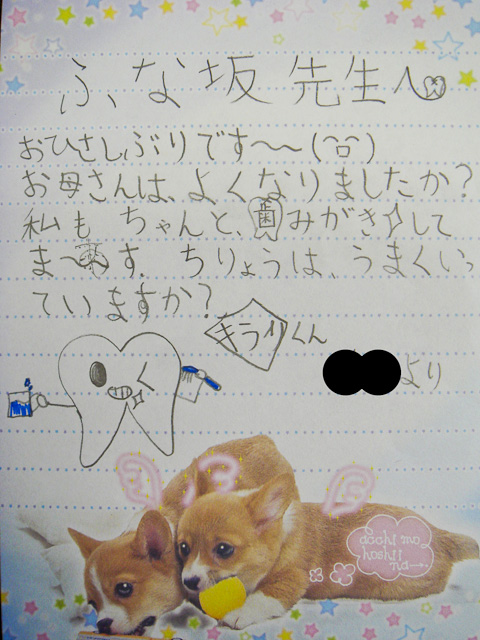 ふな坂先生へ
おひさしぶりです〜〜(^ロ^)
お母さんは、よくなりましたか?
私も ちゃんと、歯みがきして
ま〜す。ちりょうは、うまくいっ
ていますか?
キラリくん
より